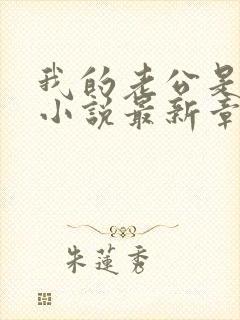 我的老公是
小说最新章
朱莲秀